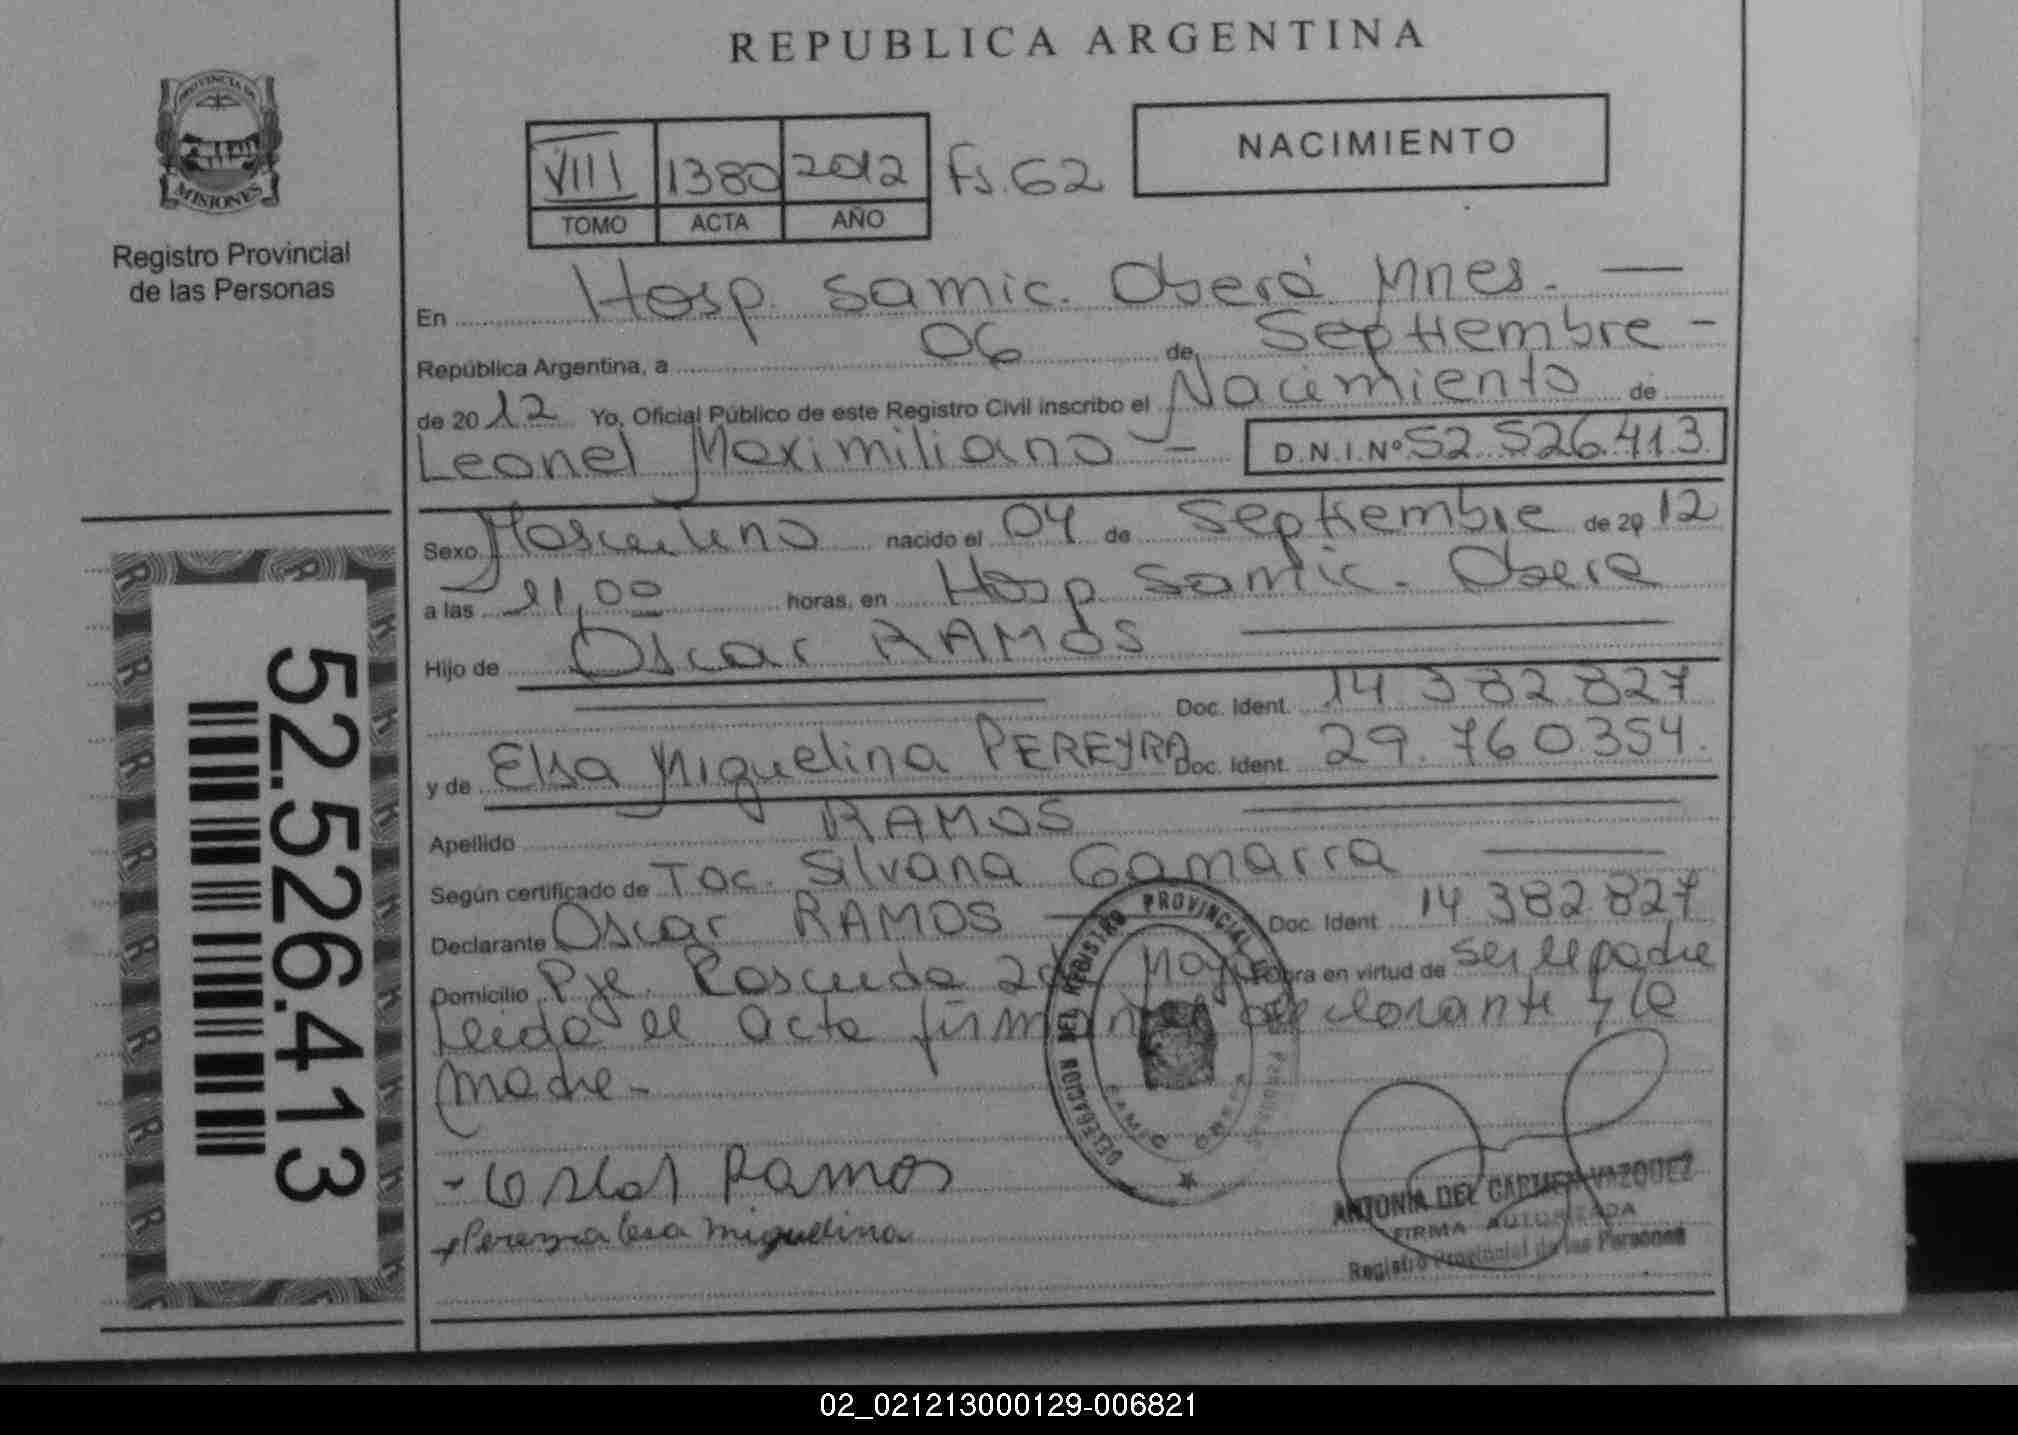 REPUBLICA ARGENTINA
PROVINCIA DE
MISIONES
Registro Provincial
de las Personas
VIII 1380 2012 Fs. 62
TOMO ACTA AÑO
NACIMIENTO
En Hosp. Samic. Oberá Mnes. —
República Argentina, a 06 de Septiembre -
de 2012 Yo, Oficial Público de este Registro Civil inscribo el Nacimiento de
Leonel Maximiliano - D.N.I.Nº 52.526.413
Sexo Masculino nacido el 04 de Septiembre de 2012
a las 11,00 horas, en Hosp. Samic. Obera
Hijo de Oscar RAMOS
Doc. Ident. 14 382 827
y de Elsa Miguelina PEREYRA Doc. Ident. 29.760354.
Apellido RAMOS
Según certificado de Toc. Silvana Gamarra
Declarante Oscar RAMOS — Doc. Ident. 14.382.827
Domicilio Pje. Rascuda obra en virtud de ser el padre
Leida el acta firman declarante y la
madre-
DELEGACION DEL REGISTRO PROVINCIAL
SAMIC OBERA
Ramos
Pereyra Miguelina
ANTONIA DEL CARMEN VAZQUEZ
FIRMA AUTORIZADA
Registro Provincial de las Personas
52.526.413
02_021213000129-006821